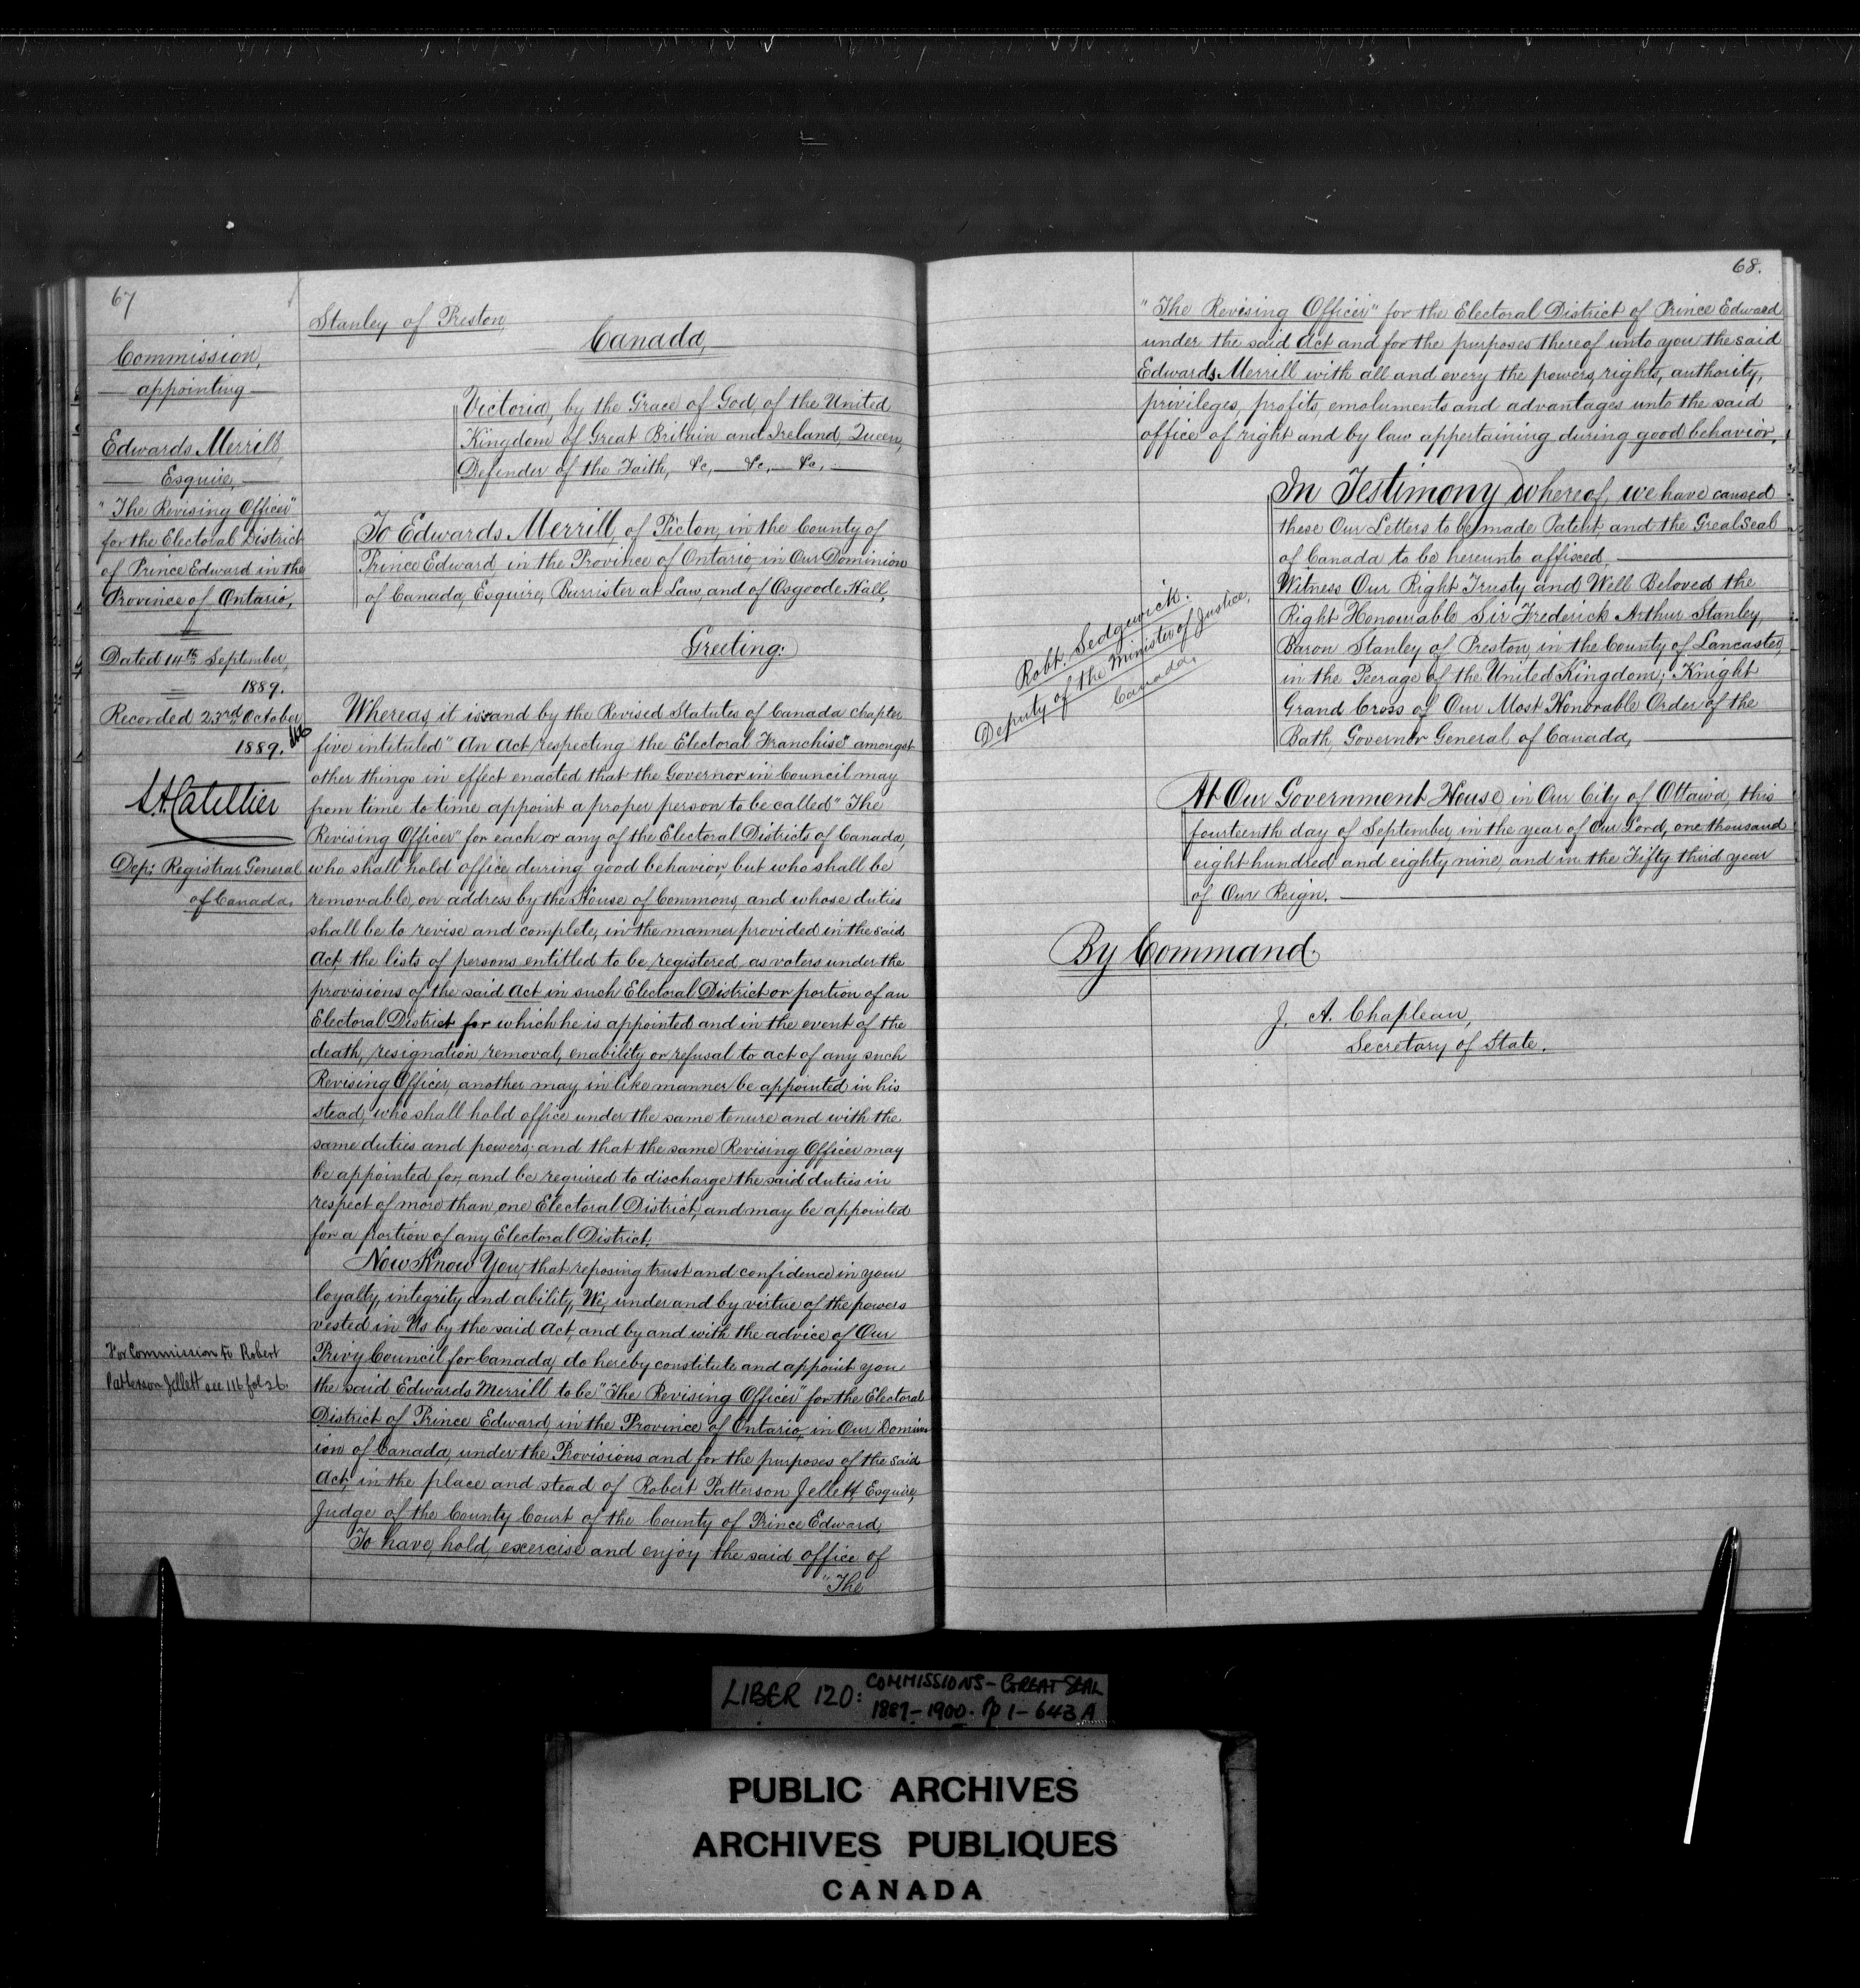 67
Commission,
appointing
Edwards Merrill,
Esquire,
"The Revising Officer"
for the Electoral District
of Prince Edward in the
Province of Ontario,
Dated 14th September,
1889.
Recorded 23rd October
1889.
Dep: Registrar General
of Canada.
For Commission to Robert
Patterson Jellett see 116 fol 26.
Stanley of Preston
Canada,
Victoria, by the Grace of God, of the United
Kingdom of Great Britain and Ireland, Queen,
Defender of the Faith, &c, &c, &c,
To Edwards Merrill, of Picton, in the County of
Prince Edward, in the Province of Ontario, in Our Dominion
of Canada, Esquire, Barrister at Law, and of Osgoode Hall,
Greeting:
Whereas, it is and by the Revised Statutes of Canada chapter
five intituled "An Act respecting the Electoral Franchise" amongst
other things in effect enacted that the Governor in Council may
from time to time appoint a proper person to be called "The
Revising Officer" for each or any of the Electoral Districts of Canada,
who shall hold office during good behavior, but who shall be
removable, on address by the House of Commons, and whose duties
shall be to revise and complete, in the manner provided in the said
Act, the lists of persons entitled to be registered, as voters under the
provisions of the said Act in such Electoral District or portion of an
Electoral District for which he is appointed and in the event of the
death, resignation removal, enability or refusal to act of any such
Revising Officer, another may, in like manner be appointed in his
stead, who shall hold office under the same tenure and with the
same duties and powers; and that the same Revising Officer may
be appointed for, and be required to discharge the said duties in
respect of more than one Electoral District, and may be appointed
for a portion of any Electoral District.
Now Know You, that reposing trust and confidence in your
loyalty, integrity and ability, We, under and by virtue of the powers
vested in Us by the said Act, and by and with the advice of Our
Privy Council for Canada, do hereby constitute and appoint you
the said Edwards Merrill to be "The Revising Officer" for the Electoral
District of Prince Edward, in the Province of Ontario, in Our Domin
ion of Canada, under the Provisions and for the purposes of the said
Act, in the place and stead of Robert Patterson Jellett, Esquire,
Judge of the County Court of the County of Prince Edward,
To have, hold, excercise and enjoy the said office of
"The
68.
"The Revising Officer" for the Electoral District of Prince Edward
under the said Act and for the purposes thereof unto you the said
Edwards Merrill with all and every the powers, rights, authority,
privileges, profits, emoluments and advantages unto the said
office of right and by law appertaining during good behavior,
In Testimony whereof, we have caused
these Our Letters to be made Patent, and the Great Seal
of Canada to be hereunto affixed,
Witness Our Right Trusty and Well Beloved the
Right Honourable Sir Frederick Arthur Stanley,
Baron Stanley of Preston, in the County of Lancaster,
in the Peerage of the United Kingdom; Knight
Grand Cross of Our Most Honorable Order of the
Bath, Governor General of Canada,
Robt. Sedgwick.
Deputy of the Minister of Justice,
Canada,
At Our Government House, in Our City of Ottawa, this
fourteenth day of September, in the year of Our Lord, one thousand
eight hundred and eighty nine, and in the Fifty third year
of Our Reign.
By Command.
J. A. Chapleau,
Secretary of State.
LIBER 120: COMMISSIONS - GREAT SEAL
1889-1900. pp 1-643A
PUBLIC ARCHIVES
ARCHIVES PUBLIQUES
CANADA